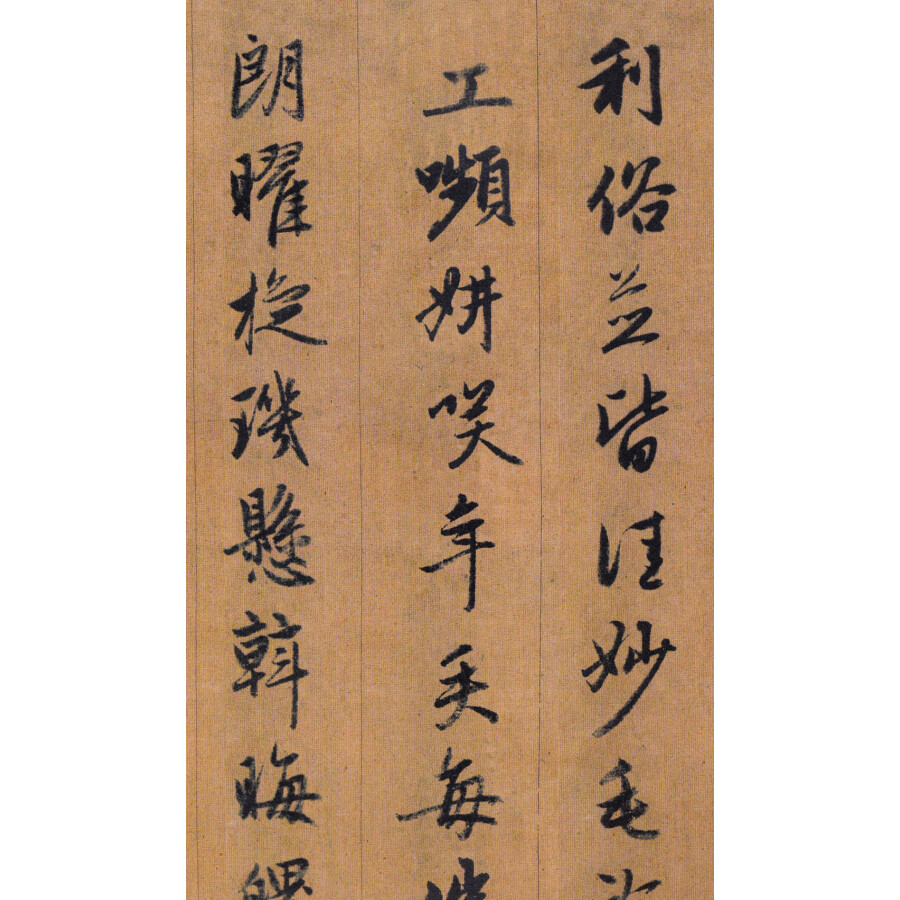 利俗並皆佳妙毛
工嚬妍咲年矢每
朗曜旋璣懸斡晦